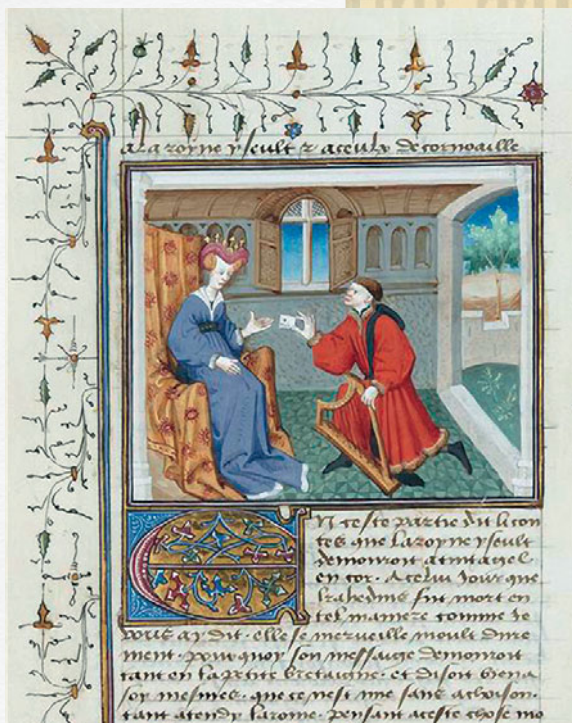 A la royne yseult & a ceulx de cornoaille
En ceste partie dit li con
tes que la royne yseult
demouroit a tintagel
en cor. A celui jour que
fut mort en
tel maniere comme je
vous ay dit. elle se merveille moult dure
ment. pour quoy son messaige demouroit
tant en la petite bretaigne. et disoit bien a
soy mesmes. que ce nest mie sans achoison.
tant atendy la royne. pensant a ceste chose